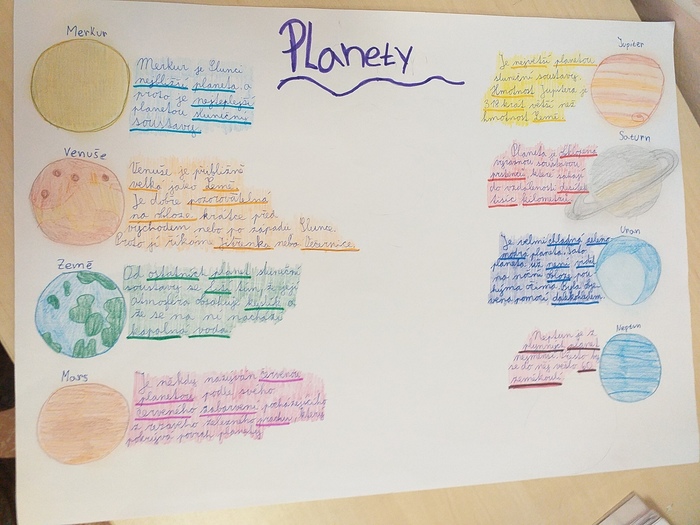 Planety
Merkur
Merkur je Slunci
nejbližší planeta a
proto je nejteplejší
planetou sluneční
soustavy.
Venuše
Venuše je přibližně
velká jako Země.
Je dobře pozorovatelná
na obloze krátce před
východem nebo po západu Slunce.
Proto jí říkáme Jitřenka nebo Večernice.
Země
Od ostatních planet sluneční
soustavy se liší tím, že její
atmosféra obsahuje kyslík a
že se na ní nachází
kapalná voda.
Mars
Je někdy nazýván červenou
planetou podle svého
červeného zabarvení pocházejícího
z rezavého železného prachu, který
pokrývá povrch planety.
Jupiter
Je největší planetou
sluneční soustavy.
Hmotnost Jupitera je
318 krát větší než
hmotnost Země.
Saturn
Planeta s
výraznou soustavou
prstenců, které sahají
do vzdálenosti
tisíc kilometrů.
Uran
Je velmi chladná zeleno
modrá planeta. Tato
planeta už není vidět
na noční obloze
očima. Byla
pomocí dalekohledu.
Neptun
Neptun je z
plynných planet
nejmenší. Přesto by
se do něj vešlo 60
zeměkoulí.